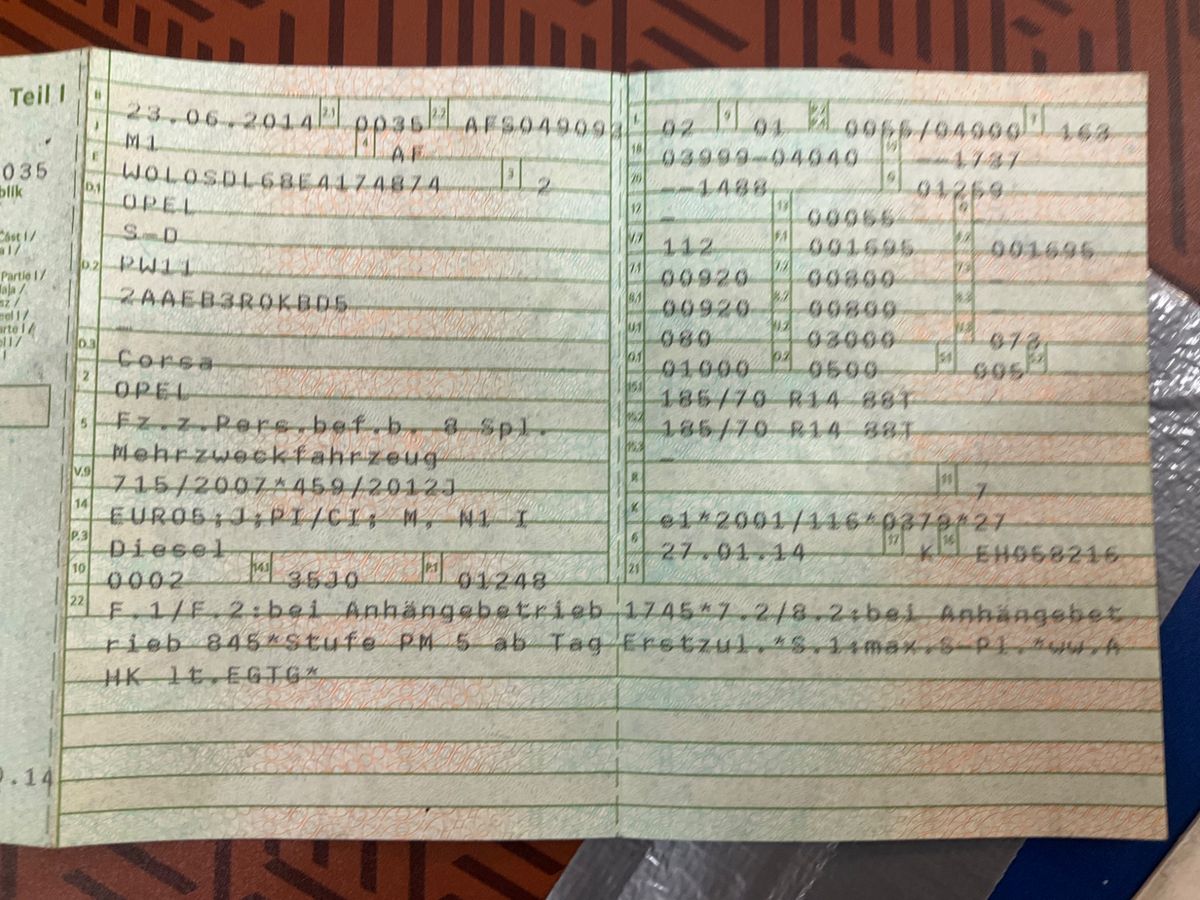 Teil I
035
blik
Část I /
a I /
Partie I /
.14
B 23.06.2014 2.1 0035 2.2 AFS049093
J M1 4 AF
E W0L0SDL68E4174874 3 2
D.1 OPEL
S-D
D.2 PW11
2AAEB3R0KBD5
—
D.3 Corsa
2 OPEL
5 Fz.z.Pers.bef.b. 8 Spl.
Mehrzweckfahrzeug
V.9 715/2007*459/2012J
14 EURO5;J;PI/CI; M, N1 I
P.3 Diesel
10 0002 14.1 35J0 P.1 01248
L 02 9 01 P.2 P.4 0055/04000 T 163
18 03999-04040 19 --1737
20 --1488 G 01259
12 - 13 00055 Q -
V.7 112 F.1 001695 F.2 001695
7.1 00920 7.2 00800 7.3 -
8.1 00920 8.2 00800 8.3 -
U.1 080 U.2 03000 U.3 073
O.1 01000 O.2 0500 S.1 005 S.2
15.1 185/70 R14 88T
15.2 185/70 R14 88T
15.3 —
R 11 7
K e1*2001/116*0379*27
6 27.01.14 17 K 16 EH058216
21
22 F.1/F.2:bei Anhängebetrieb 1745*7.2/8.2:bei Anhängebet
rieb 845*Stufe PM 5 ab Tag Erstzul.*S.1:max.S-Pl.*ww.A
HK lt.EGTG*